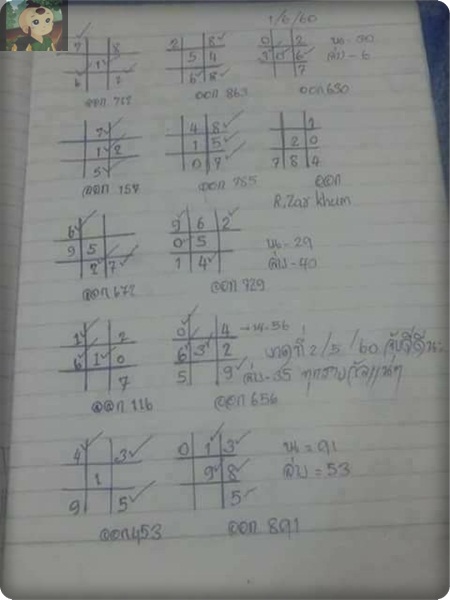 1/6/60
7 8
1
6 2
ออก 762
2 8
5 4
6 8
ออก 863
0 2
3 0 6
7
ออก 630
บน - 30
ล่าง - 6
7
1 2
5
ออก 157
4 8
1 5
0 7
ออก 785
2
2 0
7 8 4
ออก
R.Zar khum
6
9 5
2 7
ออก 672
9 6 2
0 5
1 4
ออก 929
บน - 29
ล่าง - 40
1 2
6 1 0
7
ออก 116
0 4
6 3 2
5 9
ออก 656
→ บน.56
งวดที่ 2/5/60
ล่าง - 35
4 3
1
9 5
ออก 453
0 1 3
9 8
5
ออก 891
บน = 91
ล่าง = 53